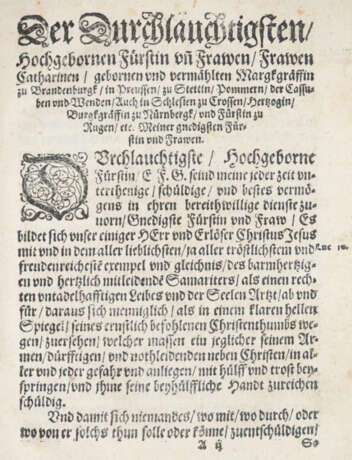 Der Durchläuchtigsten/
Hochgebornen Fürstin vñ Frawen/ Frawen
Catharinen/ gebornen vnd vermählten Marggräffin
zu Brandenburgk/ in Preussen/ zu Stettin/ Pommern/ der Cassu-
ben vnd Wenden/ Auch in Schlesien zu Crossen/ Hertzogin/
Burggräffin zu Nürnbergk/ vnd Fürstin zu
Rugen/ etc. Meiner gnedigsten Für-
stin vnd Frawen.
DVrchlauchtigste/ Hochgeborne
Fürstin/ E. F. G. seind meine jeder zeit vn-
terthenige/ schüldige/ vnd bestes vermö-
gens in ehren bereithwillige dienste zu-
uorn/ Gnedigste Fürstin vnd Fraw/ Es
bildet sich vnser einiger HErr vnd Erlöser Christus Jesus
mit vnd in dem aller lieblichsten/ ja aller tröstlichstem vnd
Luc 10.
freudenreichestē exempel vnd gleichnis/ des barmhertzig-
en vnd hertzlich mitleidendē Samariters/ als einen rech-
ten vntadelhafftigen Leibes vnd der Seelen Artzt/ ab vnd
für/ daraus sich menniglich/ als in einem klaren hellen
Spiegel/ seines ernstlich befohlenen Christenthumbs we-
gen/ zuersehen/ welcher massen ein jeglicher seinem Ar-
men/ dürffeigen/ vnd nothleidenden neben Christen/ in al-
ler vnd jeder gefahr vnd anliegen/ mit hülff vnd trost bey-
springen/ vnd ihme seine beyhülffliche Handt zureichen
schüldig.
Vnd damit sich niemandes/ wo mit/ wo durch/ oder
wo von er solchs thun solle oder könne/ zuentschüldigen/
A ij
So